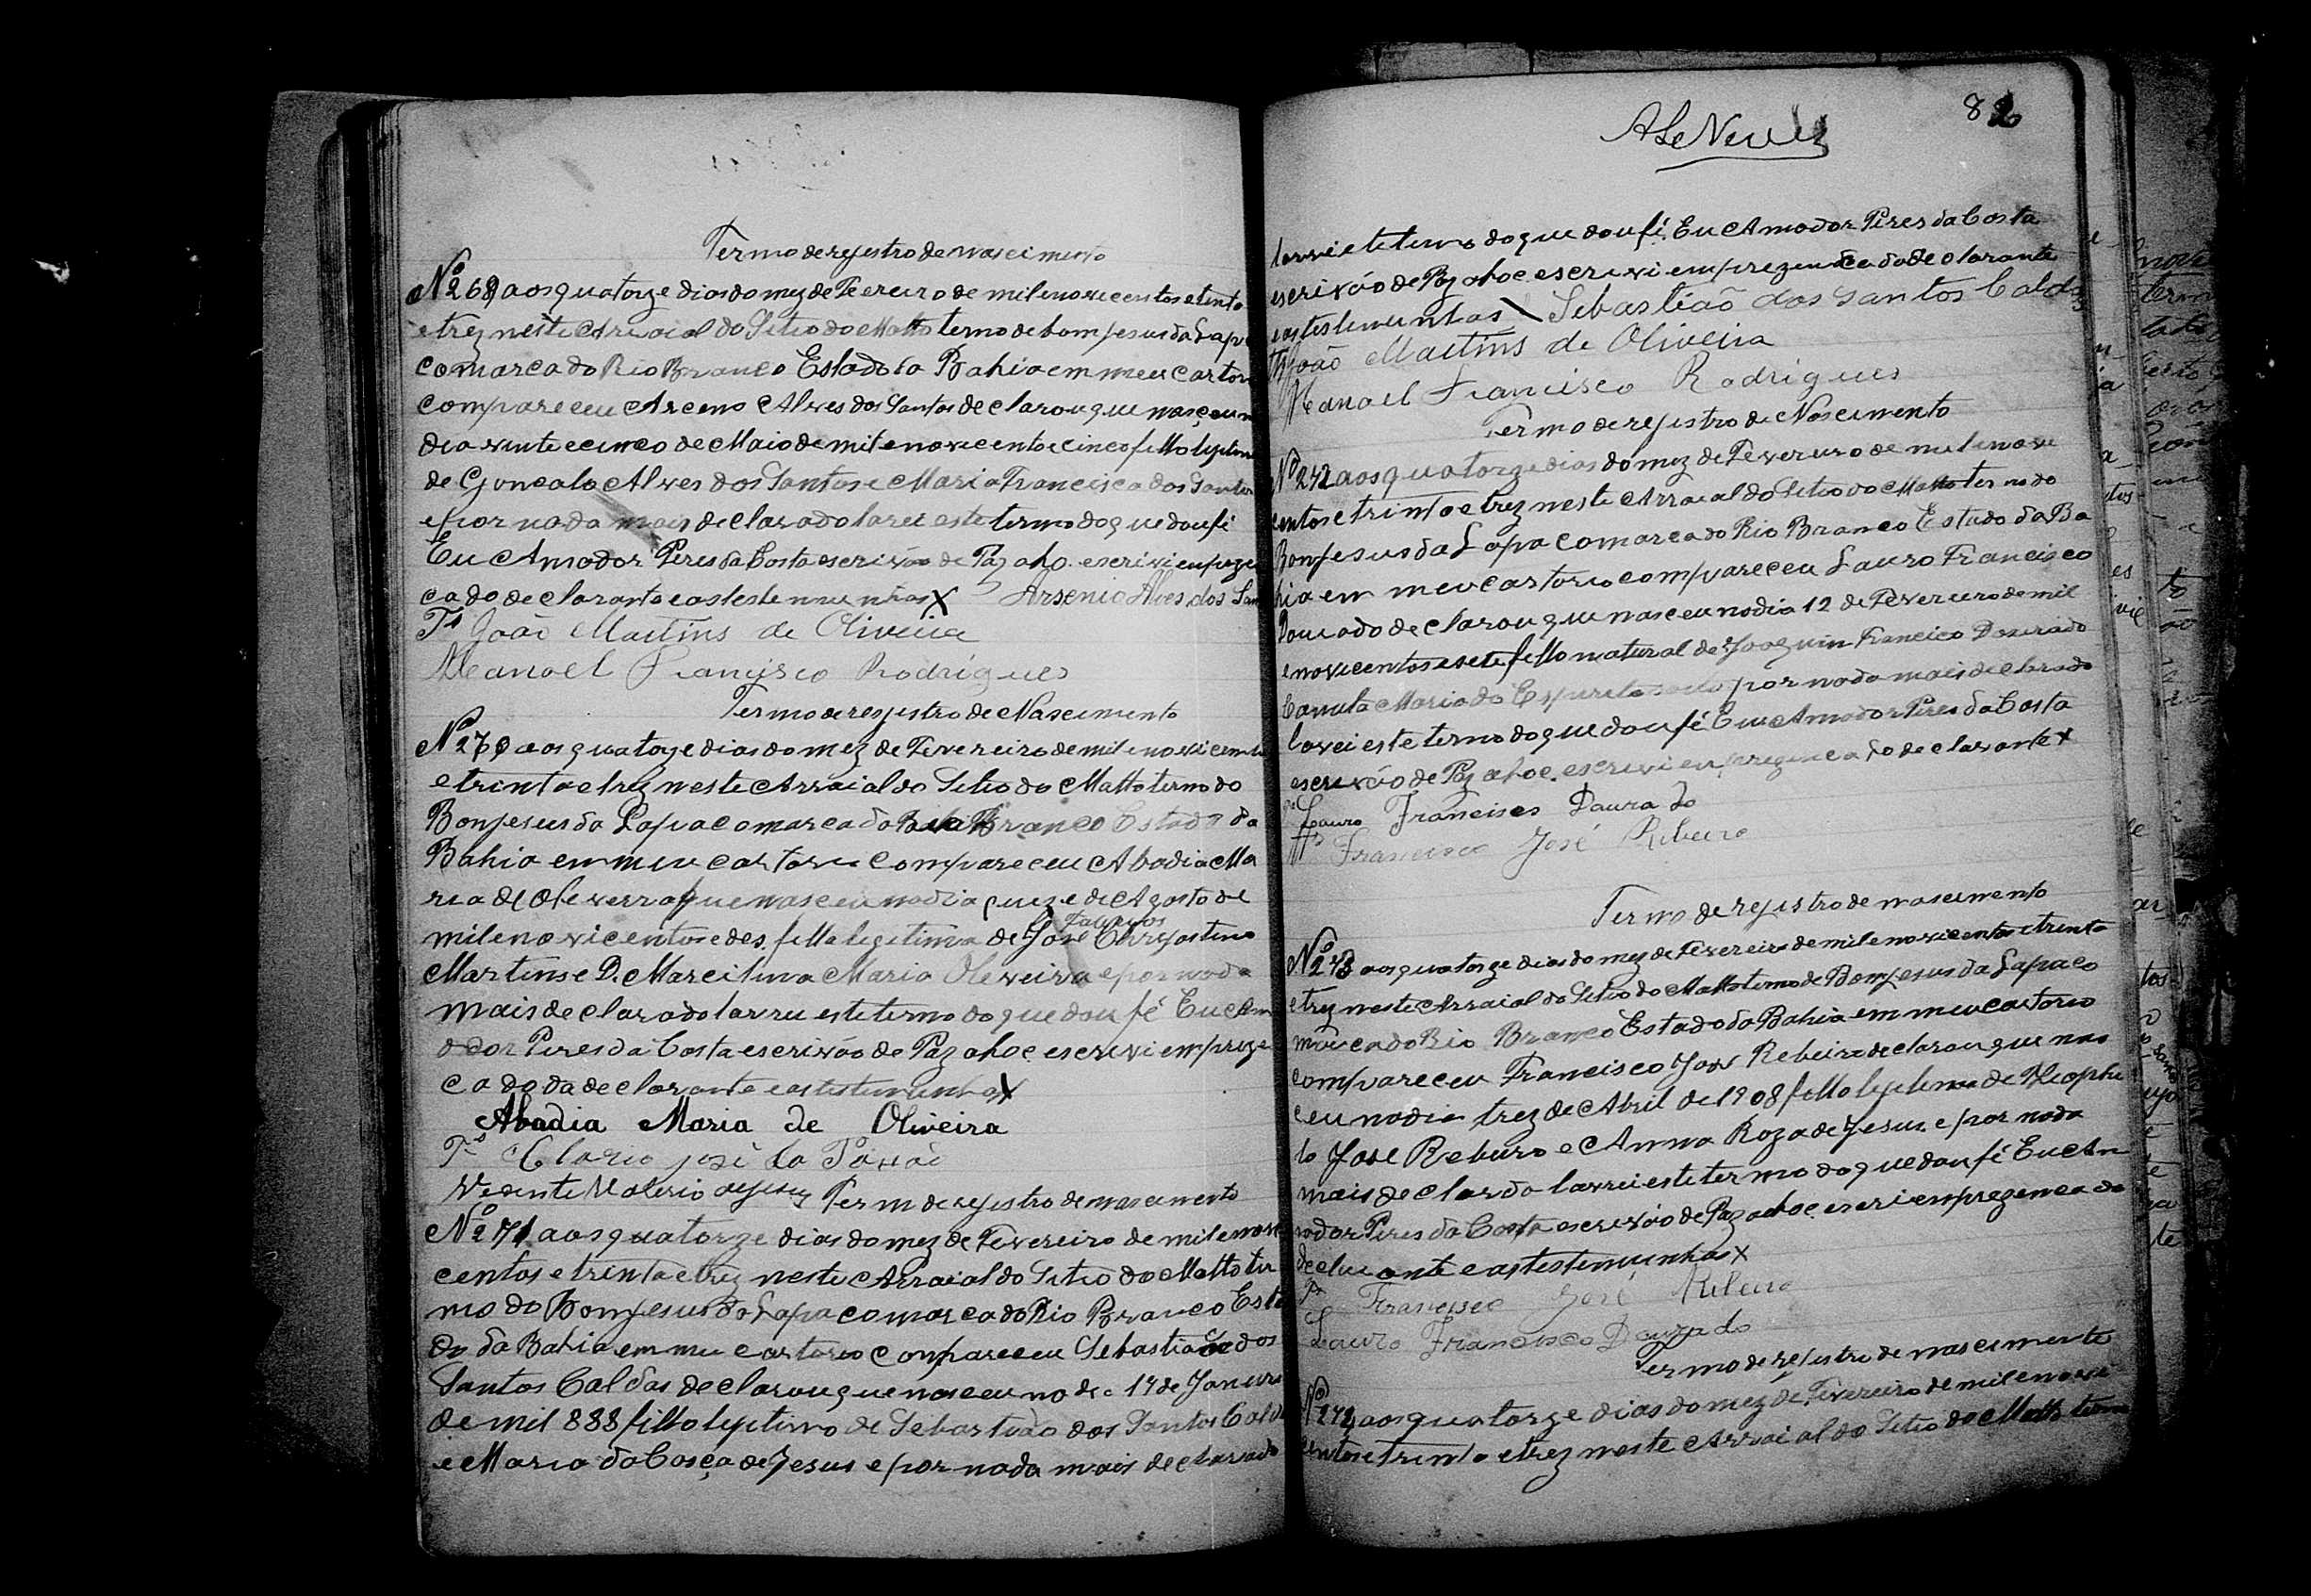 Termo de rejestro de nascimento
Nº 269 aos quatorze dias do mez de Fevereiro de mil enovecentos e trinta
e trez neste Arraial do Sitio do Matto termo de bom jesus da Lapa
comarca do Rio Branco Estado da Bahia em meu cartorio
compareceu Arceno Alves dos Santos declarou que nasceu no
dia vinte e cinco de Maio de mil e novecentos e cinco filho lejitimo
de Gonçalo Alves dos Santos e Maria Francisca dos Santos
e por nada mais declarado larei este termo do que dou fé
Eu Amador Pires da Costa escrivão de Paz ahoc escrivi em preze
ca do declarante e as testemunhas X Arsenio Alves dos San
Ts João Martins de Oliveira
Manoel Francisco Rodrigues
Termo de rejestro de Nascimento
Nº 270 aos quatorze dias do mez de Fevereiro de mil e novecentos
e trinta e trez neste Arraial do Sitio do Matto termo do
Bonjesus da Lapa comarca do Branco Estado da
Bahia em meu cartorio compareceu Abadia Ma
ria de Oleverra que nasceu no dia quize de Agosto de
mil e novicentos e des. filha legitima de José
Martins e D. Marcilina Maria Oleveira e por nada
mais declarado lavrei este termo do que dou fé Eu Am
ador Pires da Costa escrivão de Paz ahoc escrevi em preze
ca do da declarante e as testemunhas X
Abadia Maria de Oliveira
Ts Clario José da Paixão
Vicente Valerio de Jesus Termo de rejestro de nascimento
Nº 271 aos quatorze dias do mez de Fevereiro de mil e nove
centos e trinta e trez neste Arraial do Sitio do Matto ter
mo do Bonjesus da Lapa comarca do Rio Branco Esta
do da Bahia em meu cartorio compareceu Sebastião dos
Santos Caldas declarou que nasceu no dia 14 de Janeiro
de mil 888 filho lejitimo de Sebastião dos Santos Caldas
e Maria da Jesus e por nada mais declarado
82
A S Neves
lavrei este termo do que dou fé. Eu Amador Pires da Costa
escrivão de Paz ahoc escrevi em prezencia do declarante
e as testemunhas Sebastião dos Santos Caldas
Ts João Martins de Oliveira
Manoel Francisco Rodrigues
Termo de rejestro de Nascimento
Nº 272 aos quatorze dias do mez de Fevereiro de mil e nove
centos e trinta e trez neste Arraial do Sitio do Matto termo do
Bonjesus da Lapa comarca do Rio Branco Estado da Ba
hia em meu cartorio compareceu Lauro Francisco
Dourado declarou que nasceu no dia 12 de Fevereiro de mil
e novecentos e sete filho natural de Joaquim Francico Dourado
Canuta Maria do Espirito Santo por nada mais declarado
lavei este termo do que dou fé Eu Amador Pires da Costa
escrivão de Paz ahoc. escrevi em prezenca do declarante X
Lauro Francisco Daurado
Ts Francisco José Ribeiro
Termo de rejistro de nascimento
Nº 273 aos quatorze dias do mez de Fevereiro de mil e novicentos e trinta
e trez neste Arraial do Sitio do Matto termo de Bonjesus da Lapa co
marca do Rio Branco Estado da Bahia em meu cartorio
compareceu Francisco José Rebeiro declarou que nas
ceu no dia trez de Abril de 1908 filho lejitimo de Theophi
lo José Rebeiro e Anna Roza de Jesus e por nada
mais declarado lavrei este termo do que dou fé Eu Am
ador Pires da Costa escrivão de Paz ahoc escri em prezenca do
declarante e as testemunhas X
Ts Francisco José Ribeiro
Lauro Francisco Dourado
Termo de rejistro de nascimento
Nº 274 aos quatorze dias do mez de Fevereiro de mil e nove
centos e trinta e trez neste Arraial do Sitio do Matto termo